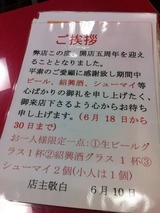 ご挨拶
弊店この度、開店五周年を迎える
こととなりました。
平素のご愛顧に感謝致し期間中
ビール、紹興酒、シューマイ等
心ばかりの御礼を申し上げたく、
御来店下さるよう心からお待ち
申し上げます。(6月18日から
30日まで)
お一人様限定一点:①生ビールグ
ラス1杯②紹興酒グラス1杯③
シューマイ2個(小人は1個)
店主敬白 6月10日